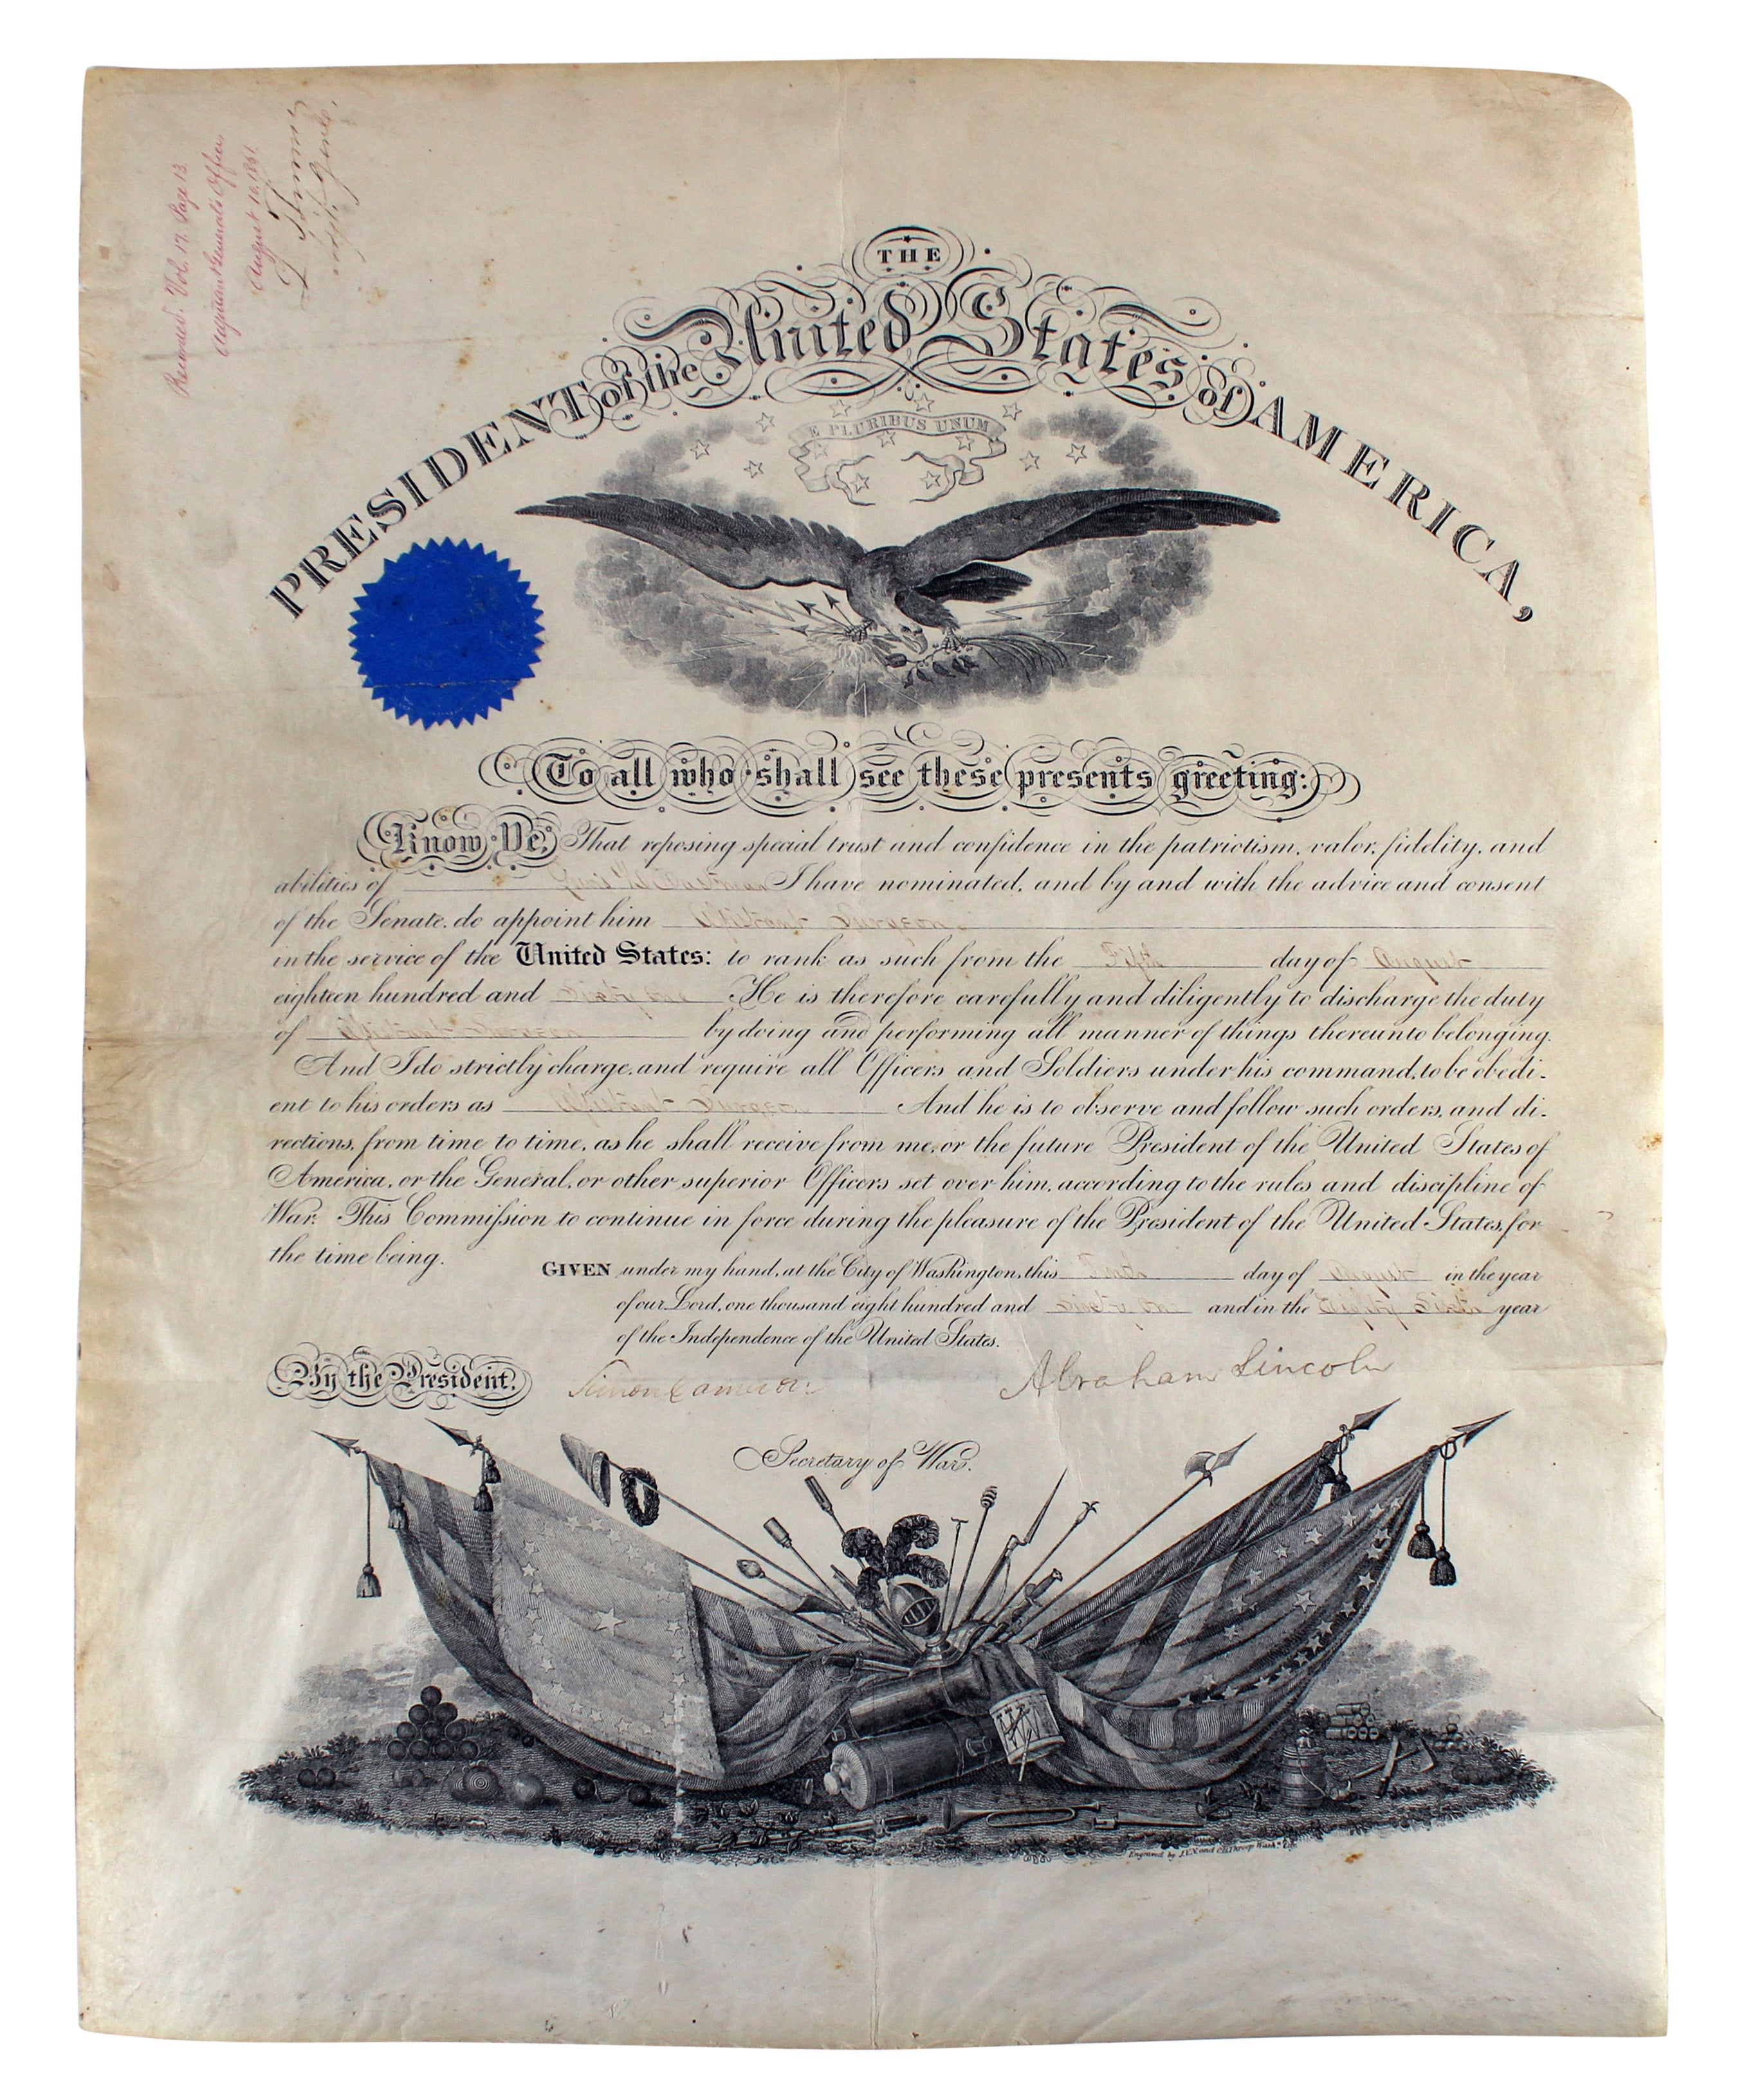 Recorded. Vol. 17. Page 13
Adjutant Generals Office
August 10. 1861.
L Thomas
Adjt. Genl.
THE
PRESIDENT of the United States of AMERICA,
E PLURIBUS UNUM
To all who shall see these presents greeting:
Know Ye, That reposing special trust and confidence in the patriotism, valor, fidelity, and
abilities of I have nominated, and by and with the advice and consent
of the Senate, do appoint him Assistant Surgeon
in the service of the United States: to rank as such from the Fifth day of August
eighteen hundred and Sixty One He is therefore carefully and diligently to discharge the duty
of Assistant Surgeon by doing and performing all manner of things thereunto belonging.
And I do strictly charge, and require all Officers and Soldiers under his command, to be obedi-
ent to his orders as Assistant Surgeon And he is to observe and follow such orders, and di-
rections, from time to time, as he shall receive from me, or the future President of the United States of
America, or the General, or other superior Officers set over him, according to the rules and discipline of
War. This Commission to continue in force during the pleasure of the President of the United States, for
the time being.
GIVEN under my hand, at the City of Washington, this Tenth day of August in the year
of our Lord, one thousand eight hundred and Sixty One and in the Eighty Sixth year
of the Independence of the United States.
By the President, Simon Cameron Abraham Lincoln
Secretary of War.
Engraved by J.V.N. and O.H. Throop Washn. City